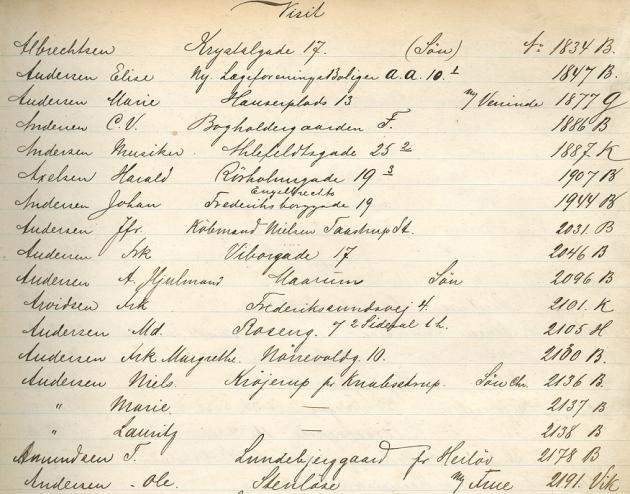 Visit
Albrechtsen Krystalgade 17. (Søn) No 1834 B.
Andersen Elise Ny. Lægeforenings Boliger A.A. 10.1 1847 B.
Andersen Marie Hauserplads 13 ny Veninde 1877 G
Andersen C.V. Bogholdergaarden F. 1886 B
Andersen Musiker. Ahlefeldtsgade 25 2 1887 K
Axelsen Harald Rörholmsgade 19 3 1907 B
Engelbrechts
Andersen Johan Frederiksborggade 19 1944 B
Andersen Jfr. Købmand Nielsen Taastrup St. 2031 B
Andersen Frk Viborgade 17 2046 B
Andersen A. Hjulmand Maarum Søn 2096 B
Arvidsen Frk Frederikssundsvej 4. 2101. K
Andersen Md. Roseng. 7 2 Sidetal t.h. 2105 H
Andersen Frk Margrethe. Nörrevoldg. 10. 2180 B.
Andersen Niels Kröjerup pr Knabstrup. Søn Chr. 2136 B.
" Marie. — 2137 B
" Lauritz — 2138 B
Amundsen F. Lundebjerggaard pr Herløv 2178 B
Andersen Ole. Stenløse ny Frue 2191. Vik